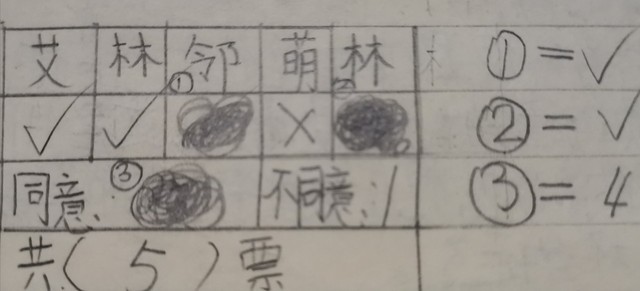 艾 林 邻 萌 林 ①=✓
✓ ✓ ① × ② ②=✓
同意: ③ 不同意:1 ③=4
共(5)票